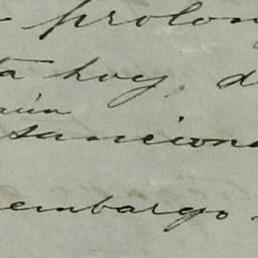 prolon
ta hoy, d
aún
sanciona
embargo